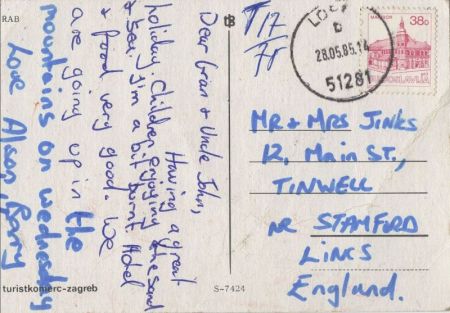 RAB
Dear brian & Uncle John,
Having a great
holiday children enjoying the sand
& sea, I'm a bit burnt Hotel
& food very good. We
are going up in the
mountains on wednesday
Love Alison, Barry
turistkomerc-zagreb
S-7424
T 17
28.05.85.14
51281
MARIBOR
38
JUGOSLAVIJA
MR & MRS JINKS
12, Main ST.,
TINWELL
NR STAMFORD
LINCS
England.